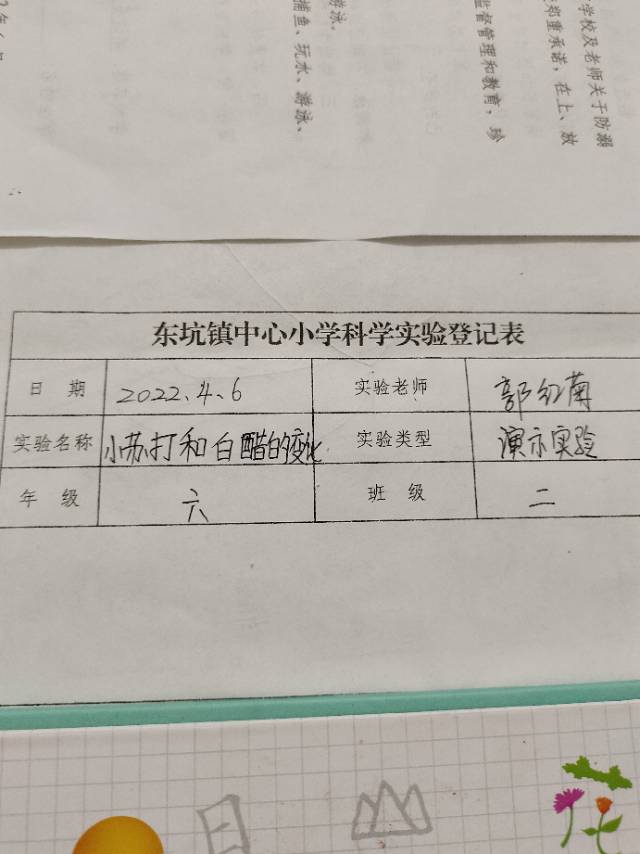 学校及老师关于防溺
郑重承诺，在上、放
监督管理和教育，珍
游泳。
捕鱼、玩水、游泳、
东坑镇中心小学科学实验登记表
日 期 2022.4.6 实验老师 郭红菊
实验名称 小苏打和白醋的变化 实验类型 演示实验
年 级 六 班 级 二